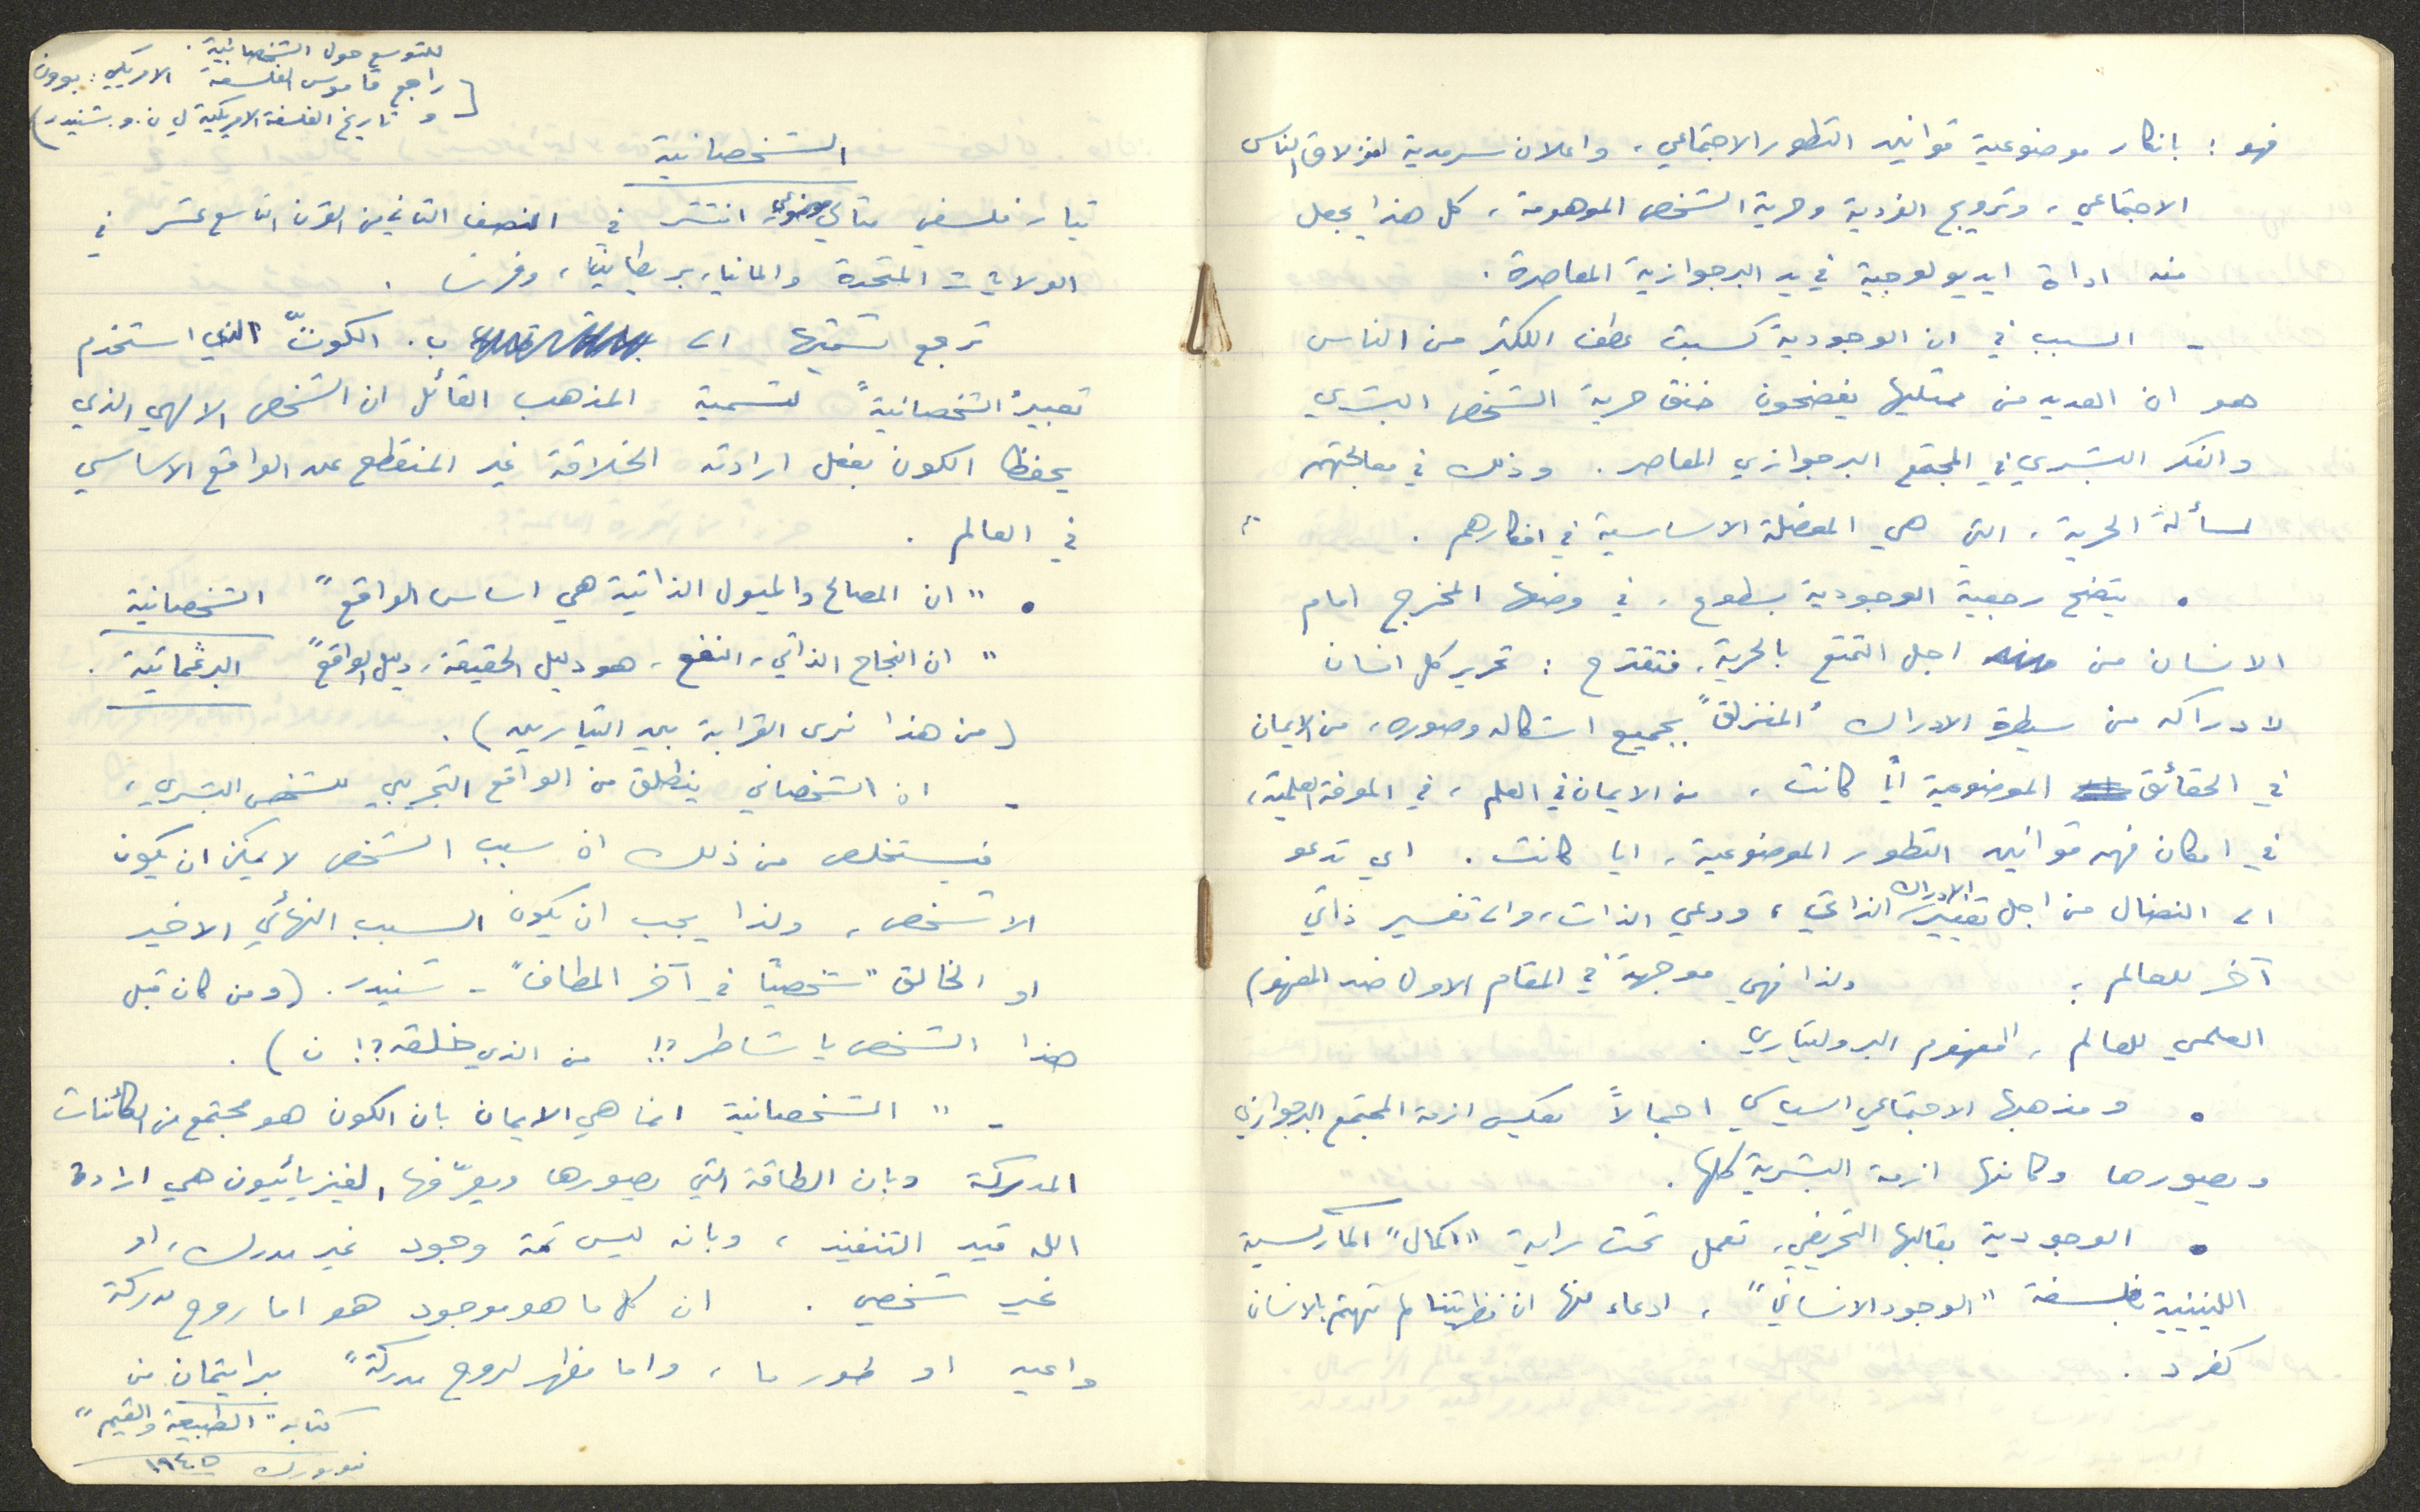 فهو : بانكار موضوعية قوانين التطور الاجتماعي ، واعلان سرمدية انزلاق الناس
الاجتماعي ، وترويج الفردية وحرية الشخص الموهومة ، كل هذا يجعل
منه اداة ايديولوجية في يد البرجوازية المعاصرة .
- السبب في ان الوجودية كسبت عطف الكثير من الناس
هو ان العديد من ممثليها يفضحون خنق حرية الشخص البشري
والفكر البشري في المجتمع البرجوازي المعاصر . وذلك في معالجتهم
لمسألة الحرية ، التي هي المعضلة الاساسية في افكارهم .
• يتضح رجعية الوجودية بسطوع ، في وضعها المخرج امام
الانسان من اجل التمتع بالحرية . فتقترح : تحرير كل انسان
لادراكه من سيطرة الادراك "المنزلق" بجميع اشكاله وصوره ، من الايمان
في الحقائق الموضوعية أيا كانت ، من الايمان في العلم ، في المعرفة العلمية ،
في امكان فهم قوانين التطور الموضوعية ، ايا كانت . اي تدعو
الى النضال من اجل تغيير الادراك الذاتي ، ووعي الذات ، والى تفسير ذاتي
آخر للعالم ؛ ولذا فهي موجهة في المقام الاول ضد المفهوم
العلمي للعالم ، المفهوم البروليتاري .
• ومذهبها الاجتماعي السياسي اجمالاً يعكس ازمة المجتمع البرجوازي
ويصورها وكانها ازمة البشرية كلها .
• الوجودية بقالبها التحريفي ، تعمل تحت راية "اكمال" الماركسية
اللينينية بفلسفة "الوجود الانساني" ، ادعاء منها ان نظريتنا لم تهتم بالانسان
كفرد .
للتوسع حول الشخصانية .
[ راجع قاموس الفلسفة الامريكي : بوون
و تاريخ الفلسفة الامريكية ل ن . و . شنيدر )
الشخصانية
تيار فلسفي مثالي موضوعي انتشر في النصف الثاني من القرن التاسع عشر في
الولايات المتحدة والمانيا ، بريطانيا ، وفرنسا .
ترجع تسميتها الى ب . الكوتّ الذي استخدم
تعبير "الشخصانية" لتسمية المذهب القائل ان الشخص الالهي الذي
يحفظ الكون بفعل ارادته الخلاقة غير المنقطع عن الواقع الاساسي
في العالم .
• " ان المصالح والميول الذاتية هي اساس الواقع " الشخصانية
" ان النجاح الذاتي ، النفع ، هو دليل الحقيقة ، دليل الواقع " البرغماتية .
( من هذا نرى القرابة بين التيارين ) .
- ان الشخصاني ينطلق من الواقع التجريبي للشخص البشري ،
فيستخلص من ذلك ان سبب الشخص لا يمكن ان يكون
الا شخص ، ولذا يجب ان يكون السبب النهائي الاخير
او الخالق " شخصيًا في آخر المطاف " - شنيدر . ( ومن كان قبل
هذا الشخص يا شاطر ؟! من الذي خلقه ؟! ن ) .
- " الشخصانية انما هي الايمان بان الكون هو مجتمع من الكائنات
المدركة وبان الطاقة التي يصورها ويعرّفها الفيزيائيون هي ارادة
الله قيد التنفيذ ، وبانه ليس ثمة وجود غير مدرك ، او
غير شخصي . ان كل ما هو موجود هو اما روح مدركة
واعية او طور ما ، واما مظهر لروح مدركة " برايتمان من
كتابه " الطبيعة والقيم "
نيويورك ١٩٤٥